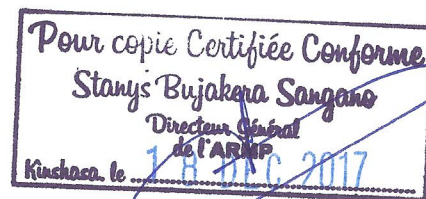 Pour copie Certifiée Conforme
Stanys Bujakera Sangano
Directeur Général
de l'ARMP
Kinshasa, le 18 DEC 2017